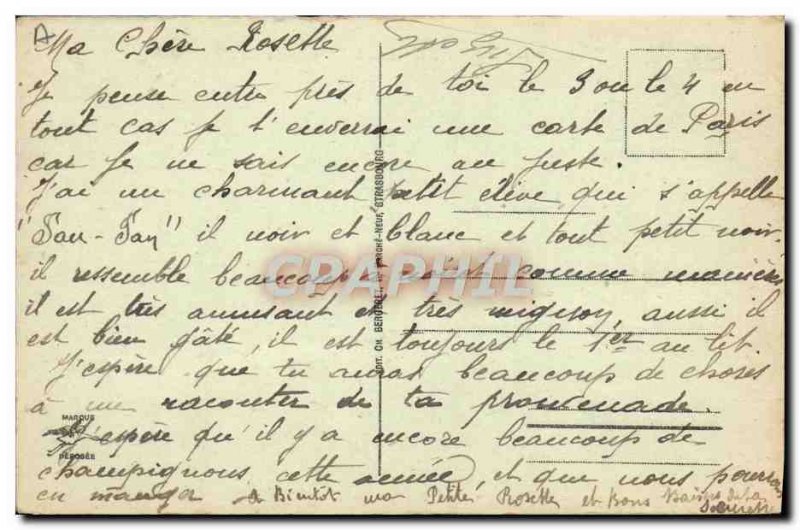 Ma Chère Rosette
Je pense entre près de toi le 3 ou le 4 en
tout cas je t'enverrai une carte de Paris
car je ne sais encore au juste.
J'ai un charmant petit élève qui s'appelle
"Fan-Fan" il noir et blanc et tout petit noir
il ressemble beaucoup comme manières
il est très amusant et très mignon, aussi il
est bien gâté, il est toujours le 1er au lit.
J'espère que tu auras beaucoup de choses
à me raconter de ta promenade.
J'espère qu'il y a encore beaucoup de
champignons cette année, et que nous pourrons
en manger à Bientot ma Petite Rosette et Bons Baisers de ta
EDIT. CH. BERGERET, MARCHÉ-NEUF, STRASBOURG
MARQUE
DÉPOSÉE
CPAPHIL